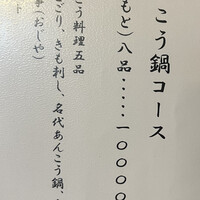 こう鍋コース
もと）八品・・・・・一〇〇〇〇
こう料理五品
ごり、きも刺し、名代あんこう鍋、
（おじや）
ト